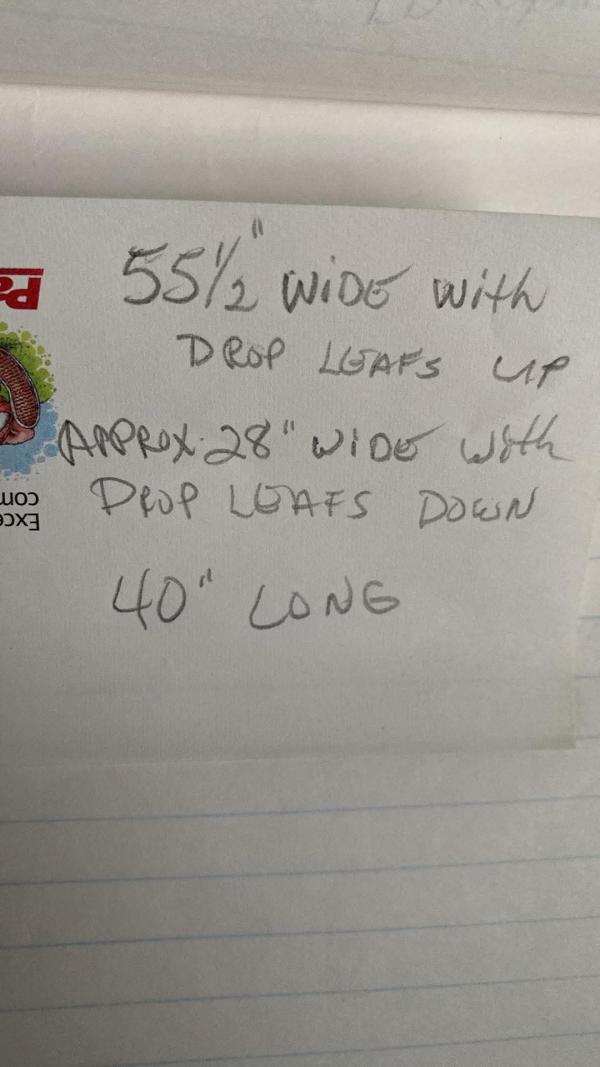 55 1/2" WIDE With
DROP LEAFS UP
APPROX. 28" WIDE With
DROP LEAFS DOWN
40" LONG
Pa
Exce
com